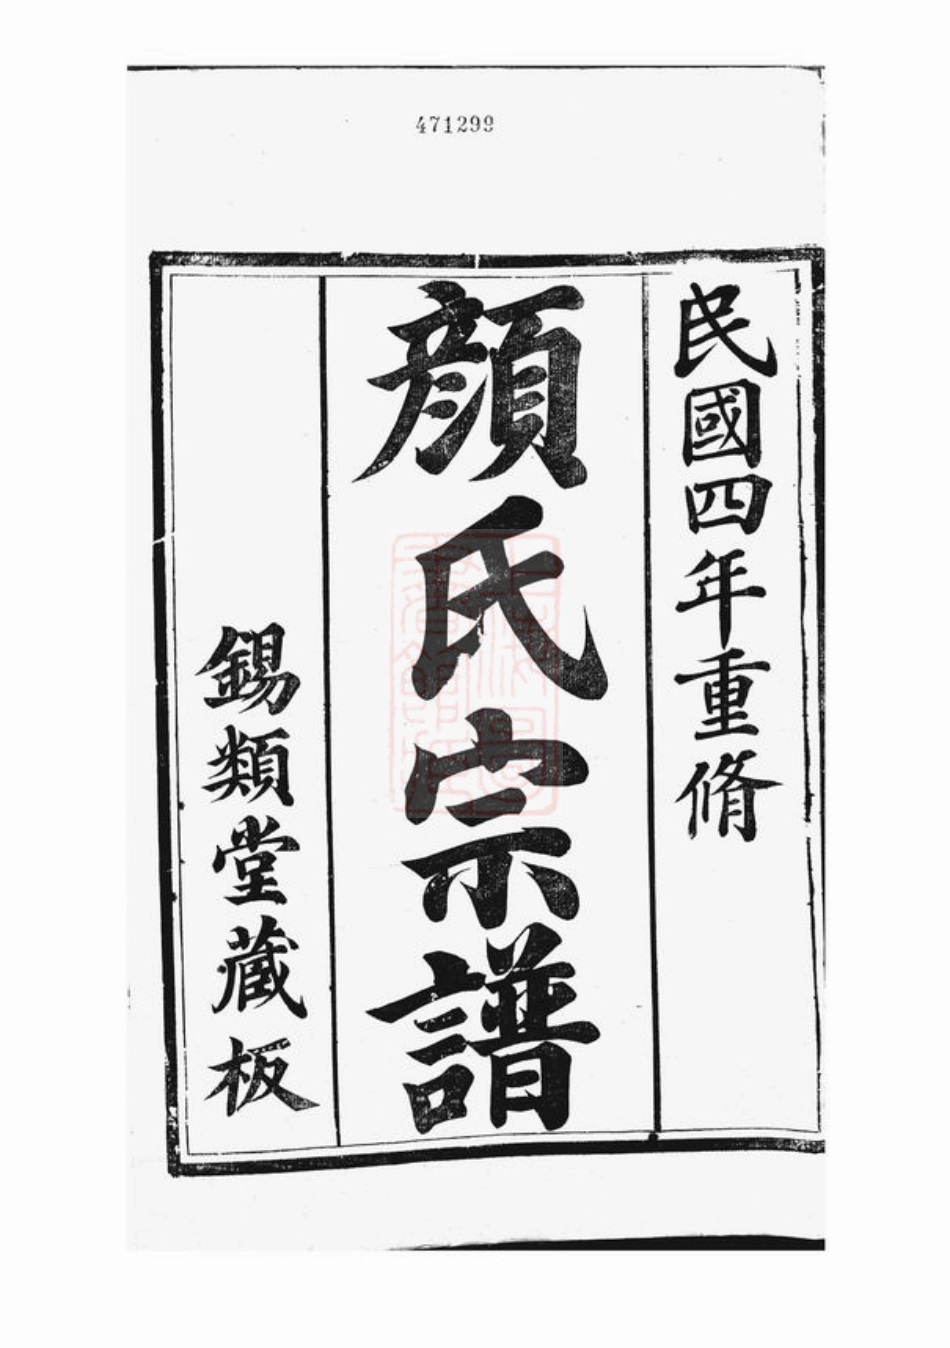 471299
民國四年重脩
顏氏宗譜
錫類堂藏板